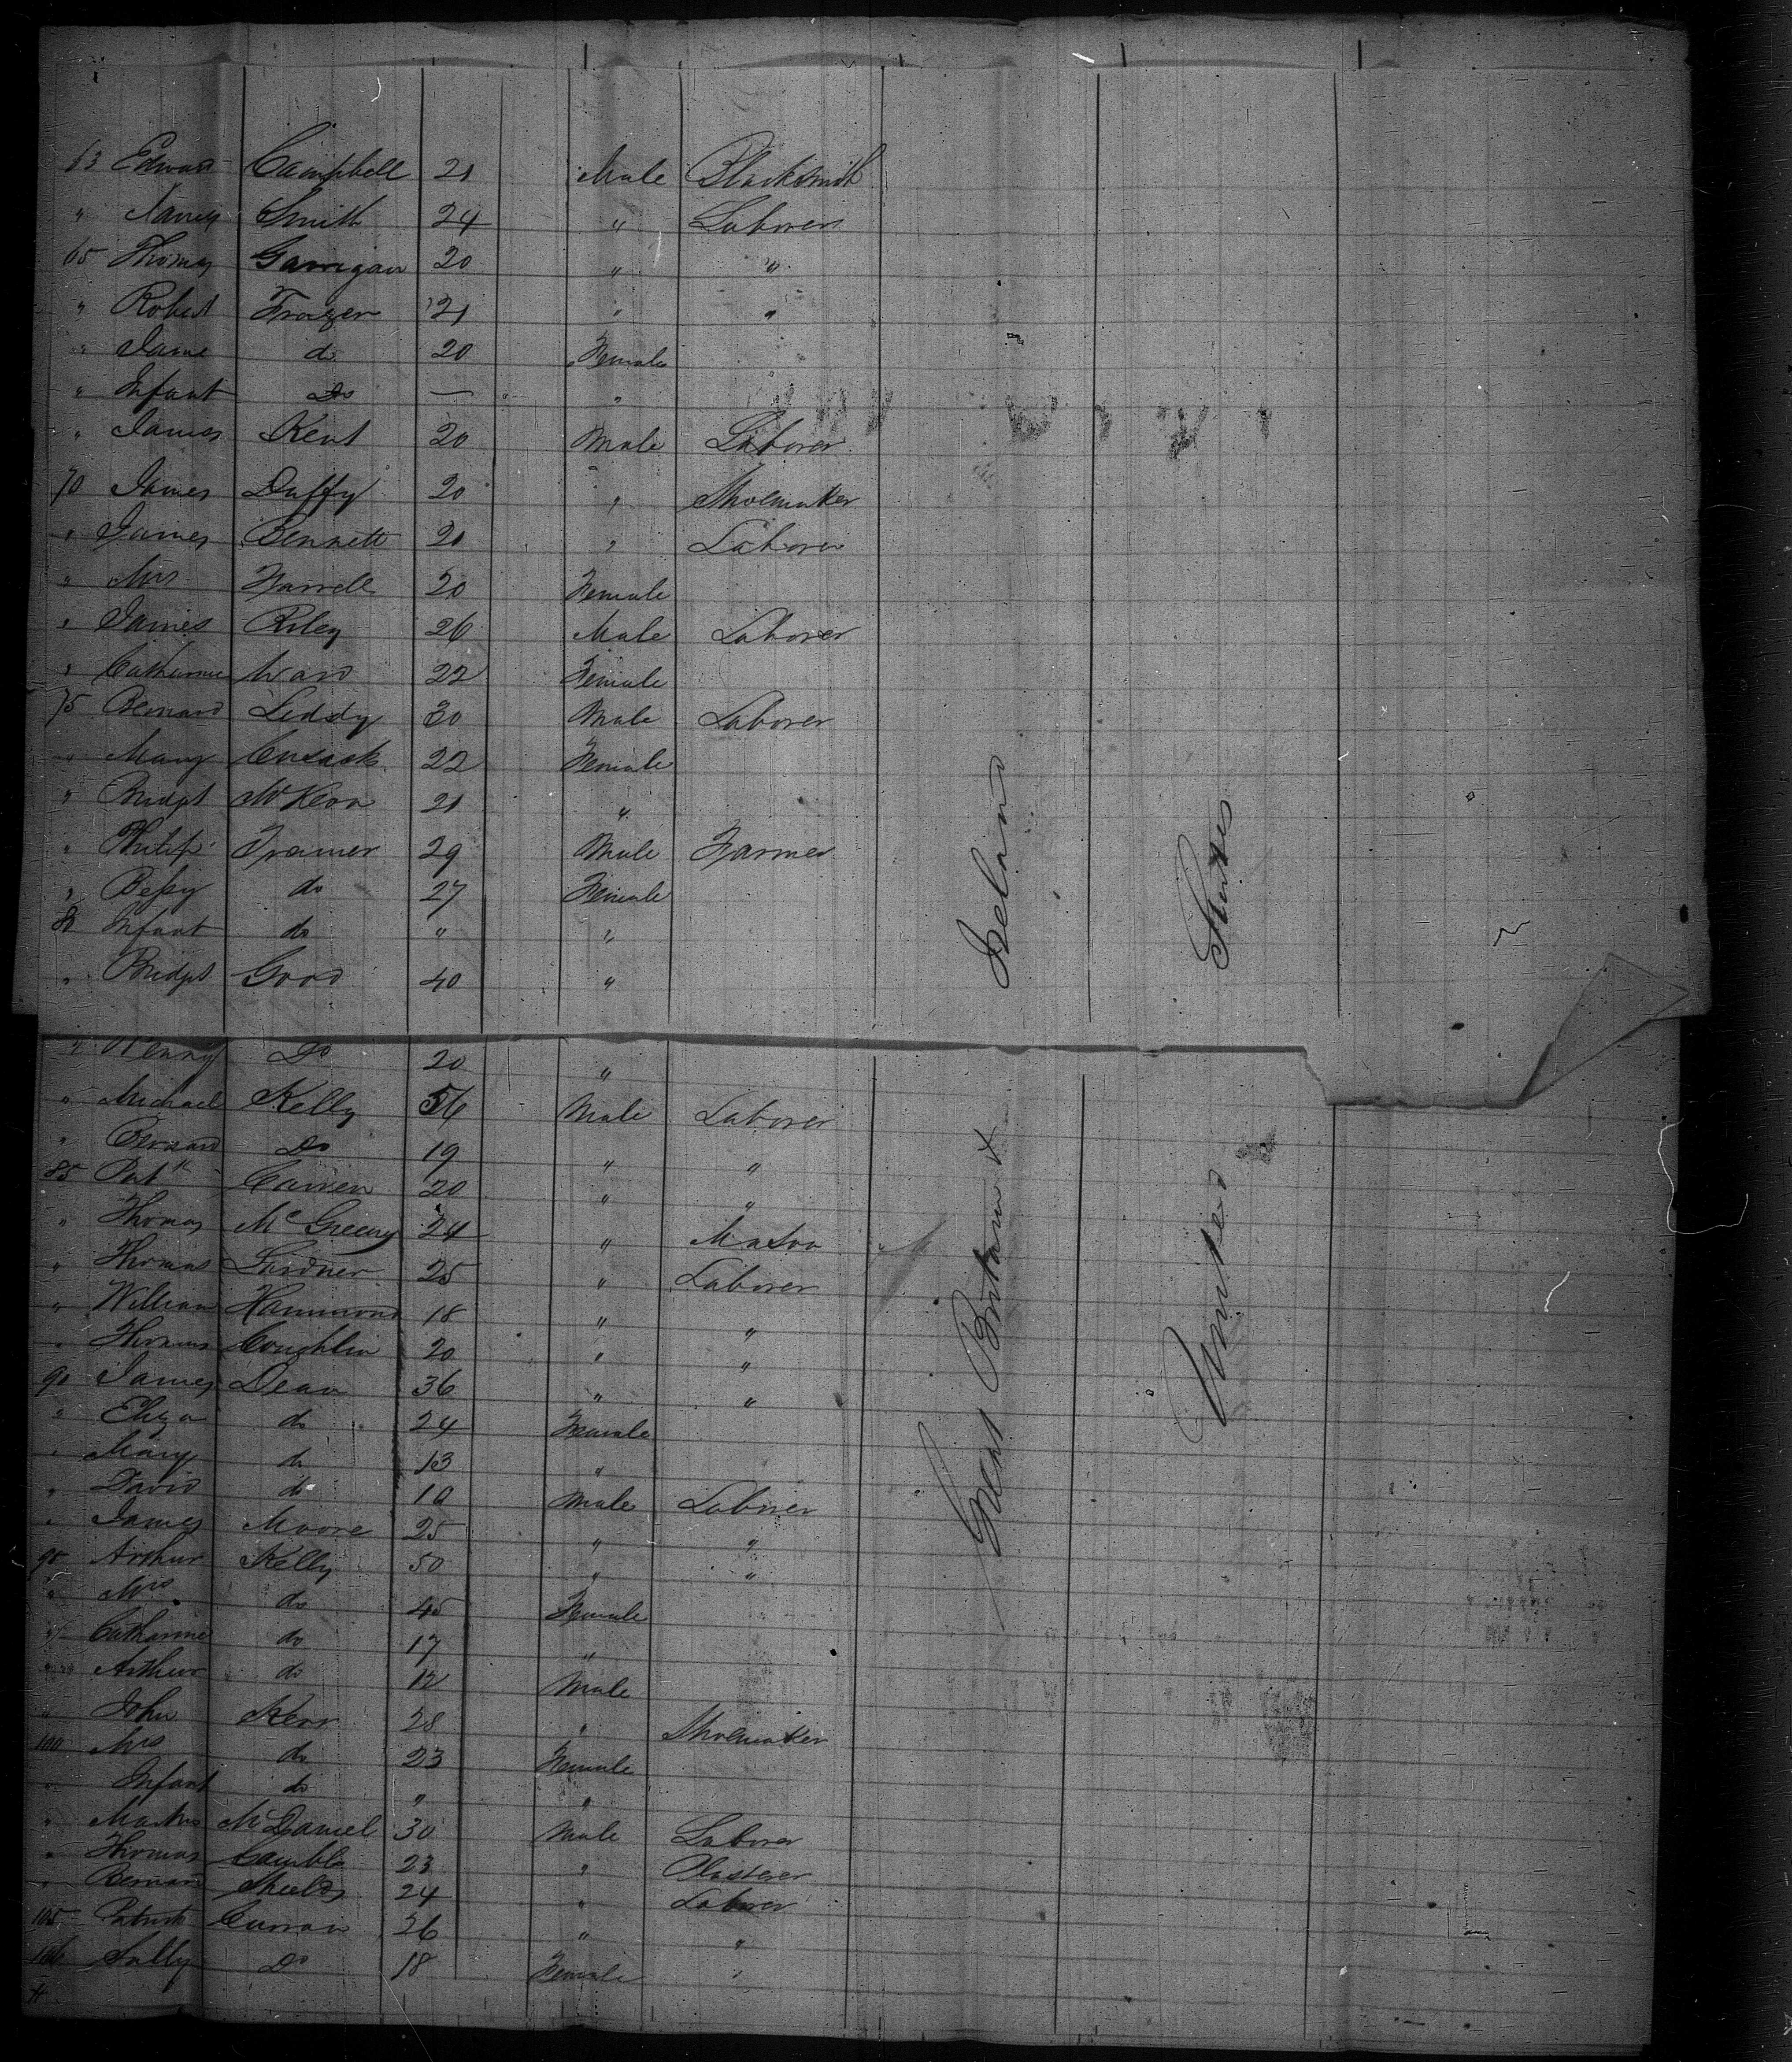 63 Edward Campbell 21 Male Blacksmith
" James Smith 24 " Laborer
65 Thomas Garrigan 20 " "
" Robert Frazer 21 " "
" Jane do 20 Female
" Infant Do — "
" James Kent 20 Male Laborer
70 James Duffy 20 " Shoemaker
" James Bennett 21 " Laborer
" Mrs Farrell 20 Female
" James Riley 26 Male Laborer
" Catharine Ward 22 Female
75 Bernard Leddy 30 Male Laborer
" Mary Cusack 22 Female
" Bridgt McKeon 21 "
" Philip Tramer 29 Male Farmer
" Bessy do 27 Female
80 Infant do " "
" Bridgt Good 40 "
" Do 20 "
" Michael Kelly 56 Male Laborer
" Bernard Do 19 " "
85 Patk 20 " "
" Thomas McGreevy 24 " Mason
" Thomas 25 " Laborer
" William Hammond 18 " "
" Thomas Coughlin 20 " "
90 James Dean 36 " "
" Eliza do 24 Female
" Mary do 13 "
" David do 10 Male Laborer
" James Moore 25 " "
95 Arthur Kelly 50 " "
" Mrs do 45 Female
97 Catharine do 17 "
" Arthur do 12 Male
" John Kerr 28 " Shoemaker
100 Mrs do 23 Female
" Infant do " "
" McDaniel 30 Male Laborer
" Thomas 23 " Plasterer
" Bernard Shields 24 " Laborer
105 Patrick Curran 26 " "
106 Sally Do 18 Female "
Great Britain & Ireland
United States